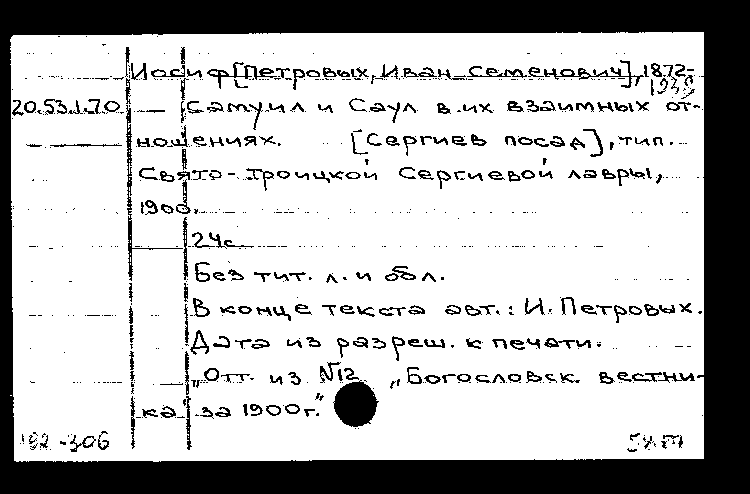 Иосиф [Петровых, Иван Семенович], 1872-
1938
20.53.1.70 — Самуил и Саул в их взаимных от-
ношениях. [Сергиев посад], тип.
Свято-Троицкой Сергиевой лавры,
1900.
24с
Без тит. л. и обл.
В конце текста авт.: И. Петровых.
Дата из разреш. к печати.
„Отт. из №12 „Богословск. вестни-
ка" за 1900г."
182-306